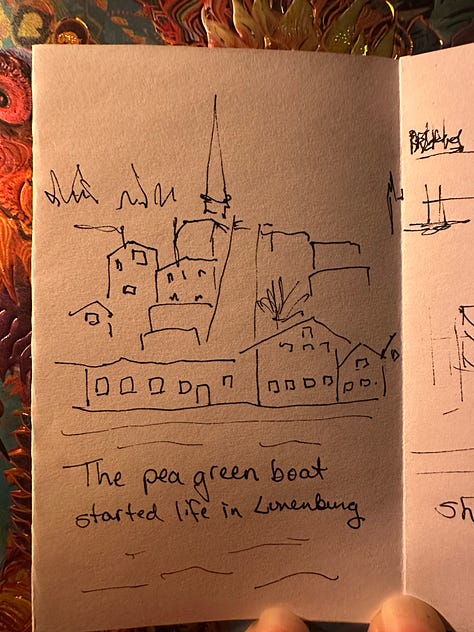 The pea green boat
started life in Lunenburg
sh